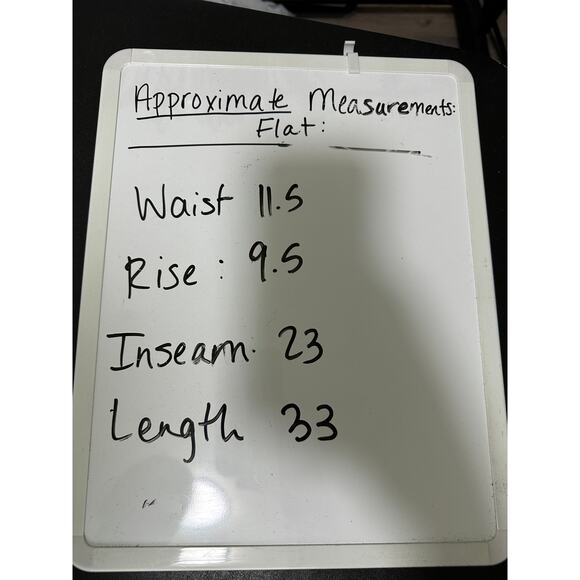 Approximate Measurements:
Flat:
Waist 11.5
Rise: 9.5
Inseam. 23
Length 33